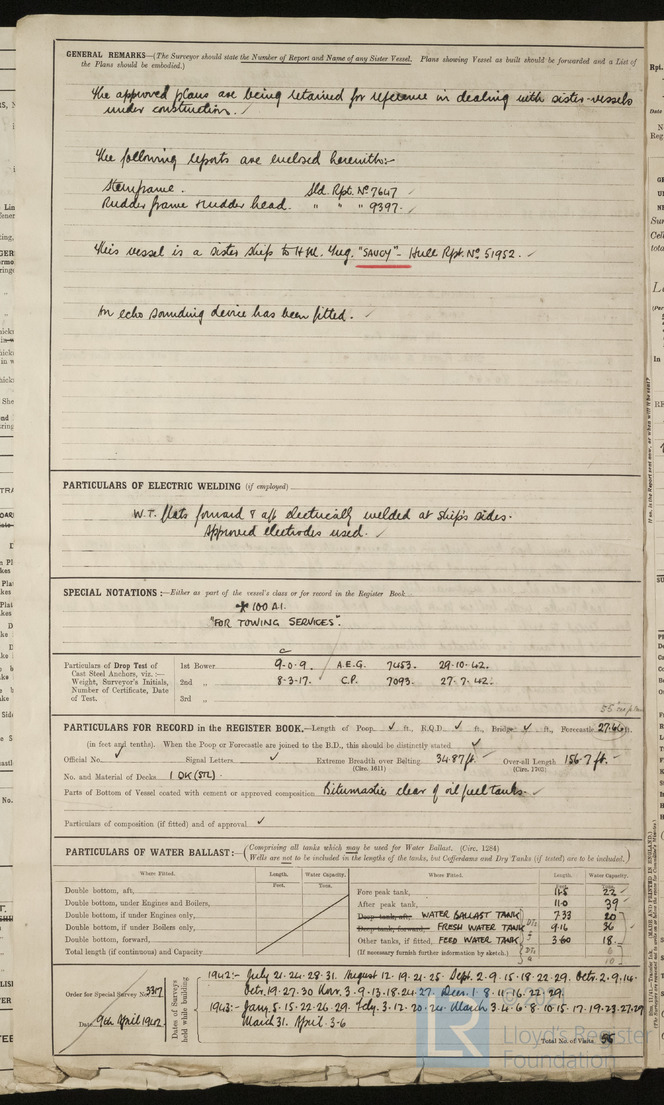 GENERAL REMARKS—(The Surveyor should state the Number of Report and Name of any Sister Vessel. Plans showing Vessel as built should be forwarded and a List of
the Plans should be embodied.)
The approved plans are being retained for reference in dealing with sister-vessels
under construction. ✓
The following reports are enclosed herewith:-
Sternframe. Sld. Rpt. Nº 7647 ✓
Rudder frame & rudder head. " " " 9397. ✓
This vessel is a sister ship to H.M. Tug. "SAUCY" - Hull Rpt. Nº 51952. ✓
An echo sounding device has been fitted. ✓
PARTICULARS OF ELECTRIC WELDING (if employed)
W.T. flats forward & aft electrically welded at ship's sides.
Approved electrodes used. ✓
SPECIAL NOTATIONS :—Either as part of the vessel's class or for record in the Register Book
✠ 100 A.1.
"FOR TOWING SERVICES".
Particulars of Drop Test of
Cast Steel Anchors, viz. :—
Weight, Surveyor's Initials,
Number of Certificate, Date
of Test.
1st Bower 9-0-9. A.E.G. 7453. 29-10-42.
2nd " 8-3-17. C.P. 7093. 27-7-42.
3rd "
PARTICULARS FOR RECORD in the REGISTER BOOK.—Length of Poop ✓ ft., R.Q.D. ✓ ft., Bridge ✓ ft., Forecastle 27.66 ft.
(in feet and tenths). When the Poop or Forecastle are joined to the B.D., this should be distinctly stated ✓
Official No. ✓ Signal Letters ✓ Extreme Breadth over Belting 34.87 ft. Over-all Length 156.7 ft.
(Circ. 1611) (Circ. 1703)
No. and Material of Decks 1 DK (STL)
Parts of Bottom of Vessel coated with cement or approved composition Bitumastic clear of oil fuel tanks. ✓
Particulars of composition (if fitted) and of approval ✓
PARTICULARS OF WATER BALLAST:—(Comprising all tanks which may be used for Water Ballast. (Circ. 1284)
Wells are not to be included in the lengths of the tanks, but Cofferdams and Dry Tanks (if tested) are to be included.)
Where Fitted. Length. Water Capacity. Where Fitted. Length. Water Capacity.
Feet. Tons.
Double bottom, aft, Fore peak tank, 11.5 22
Double bottom, under Engines and Boilers, After peak tank, 11.0 39
Double bottom, if under Engines only, Deep tank, aft, WATER BALLAST TANK 7.33 20
Double bottom, if under Boilers only, Deep tank, forward, FRESH WATER TANK 9.16 36
Double bottom, forward, Other tanks, if fitted, FEED WATER TANK 3.60 18.
Total length (if continuous) and Capacity (If necessary furnish further information by sketch.)
Order for Special Survey No. 3317
Date 9th April 1942
Dates of Surveys
held while building
1942:- July 21-24-28-31. August 12-19-21-25. Sept. 2-9-15-18-22-29. Octr. 2-9-14-
Octr. 19-27-30 Nov. 3-9-13-18-24-27 Decr. 1-8-11-16-22-29.
1943:- Jany. 5-15-22-26-29. Feby. 3-12-20-24 March 3-4-6-8-10-15-17-19-23-27-29
March 31. April 3-6
Total No. of Visits 56
© 2021
LR
Lloyd's Register
Foundation